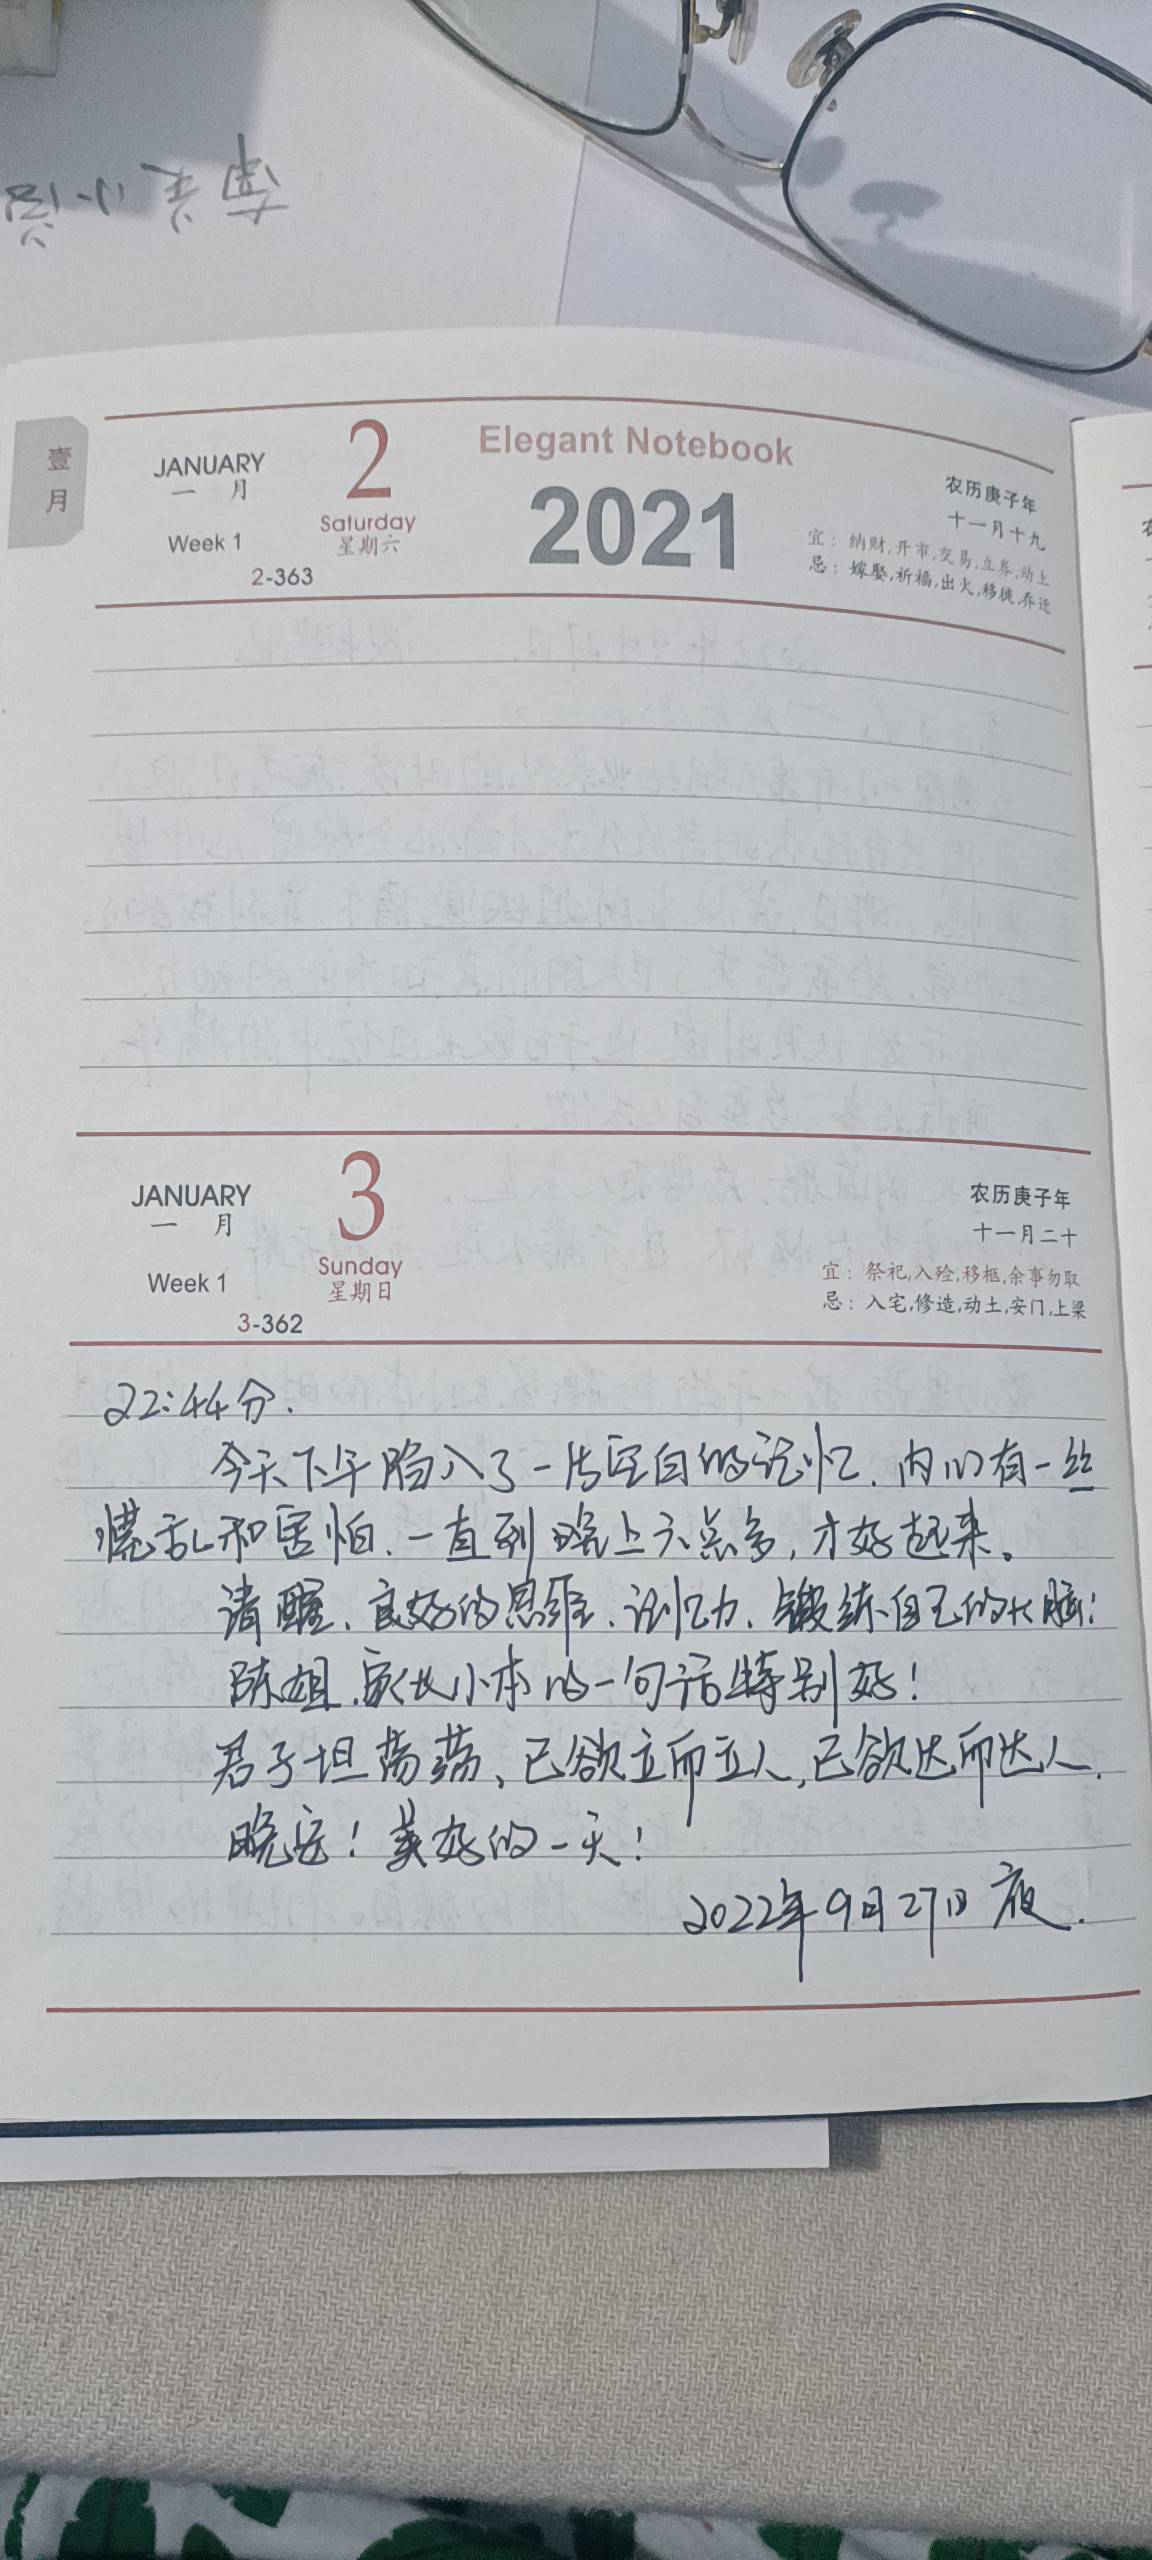 壹
月
JANUARY
一 月
Week 1
2
Saturday
星期六
2-363
Elegant Notebook
2021
农历庚子年
十一月十九
宜：纳财,开市,交易,立券,动土
忌：嫁娶,祈福,出火,移徙,乔迁
JANUARY
一 月
Week 1
3
Sunday
星期日
3-362
农历庚子年
十一月二十
宜：祭祀,入殓,移柩,余事勿取
忌：入宅,修造,动土,安门,上梁
22:44分.
今天下午陷入了一片空白的记忆.内心有一丝
慌乱和害怕.一直到晚上六点多,才好起来。
清醒、良好的思维、记忆力、锻练自己的大脑!
陈姐、家长小本的一句话特别好!
君子坦荡荡、己欲立而立人,己欲达而达人.
晚安!美好的一天!
2022年9月27日 夜.